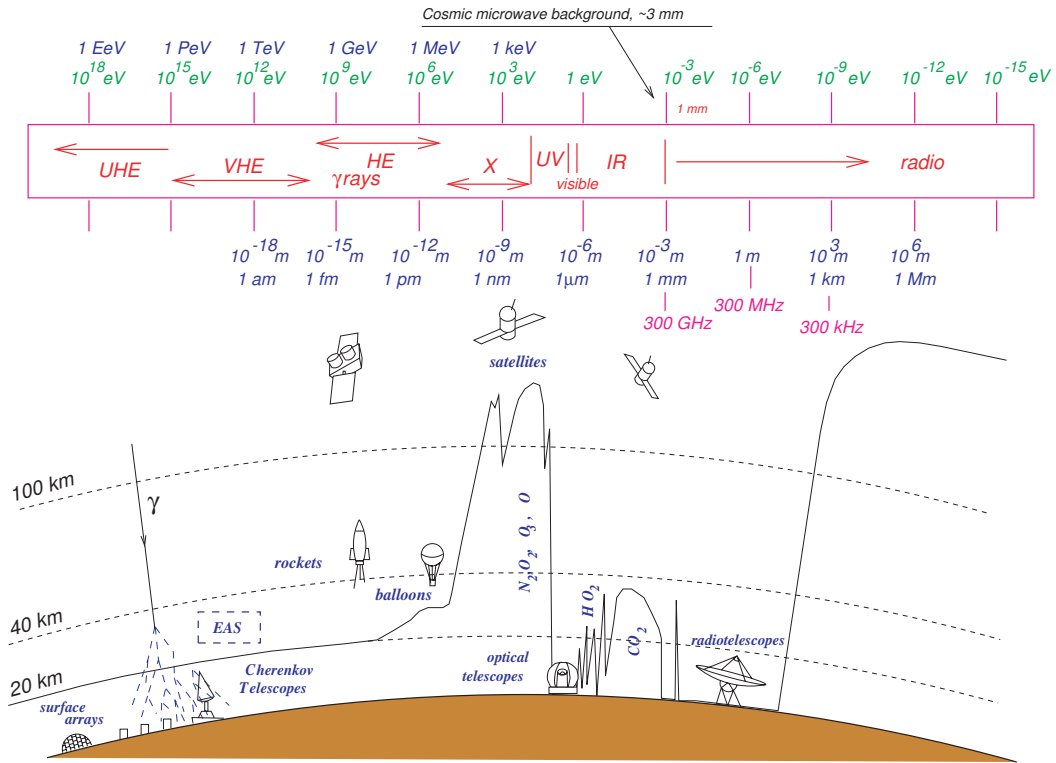 Cosmic microwave background, ~3 mm
1 EeV 1 PeV 1 TeV 1 GeV 1 MeV 1 keV
10^18 eV 10^15 eV 10^12 eV 10^9 eV 10^6 eV 10^3 eV 1 eV 10^-3 eV 10^-6 eV 10^-9 eV 10^-12 eV 10^-15 eV
1 mm
UHE VHE HE X UV IR radio
γ rays visible
10^-18 m 10^-15 m 10^-12 m 10^-9 m 10^-6 m 10^-3 m 1 m 10^3 m 10^6 m
1 am 1 fm 1 pm 1 nm 1μm 1 mm 1 km 1 Mm
300 GHz 300 MHz 300 kHz
satellites
100 km
γ
N2 O2, O3, O
rockets
balloons
H O2
40 km
EAS
CO2
radiotelescopes
optical
telescopes
Cherenkov
Telescopes
20 km
surface
arrays